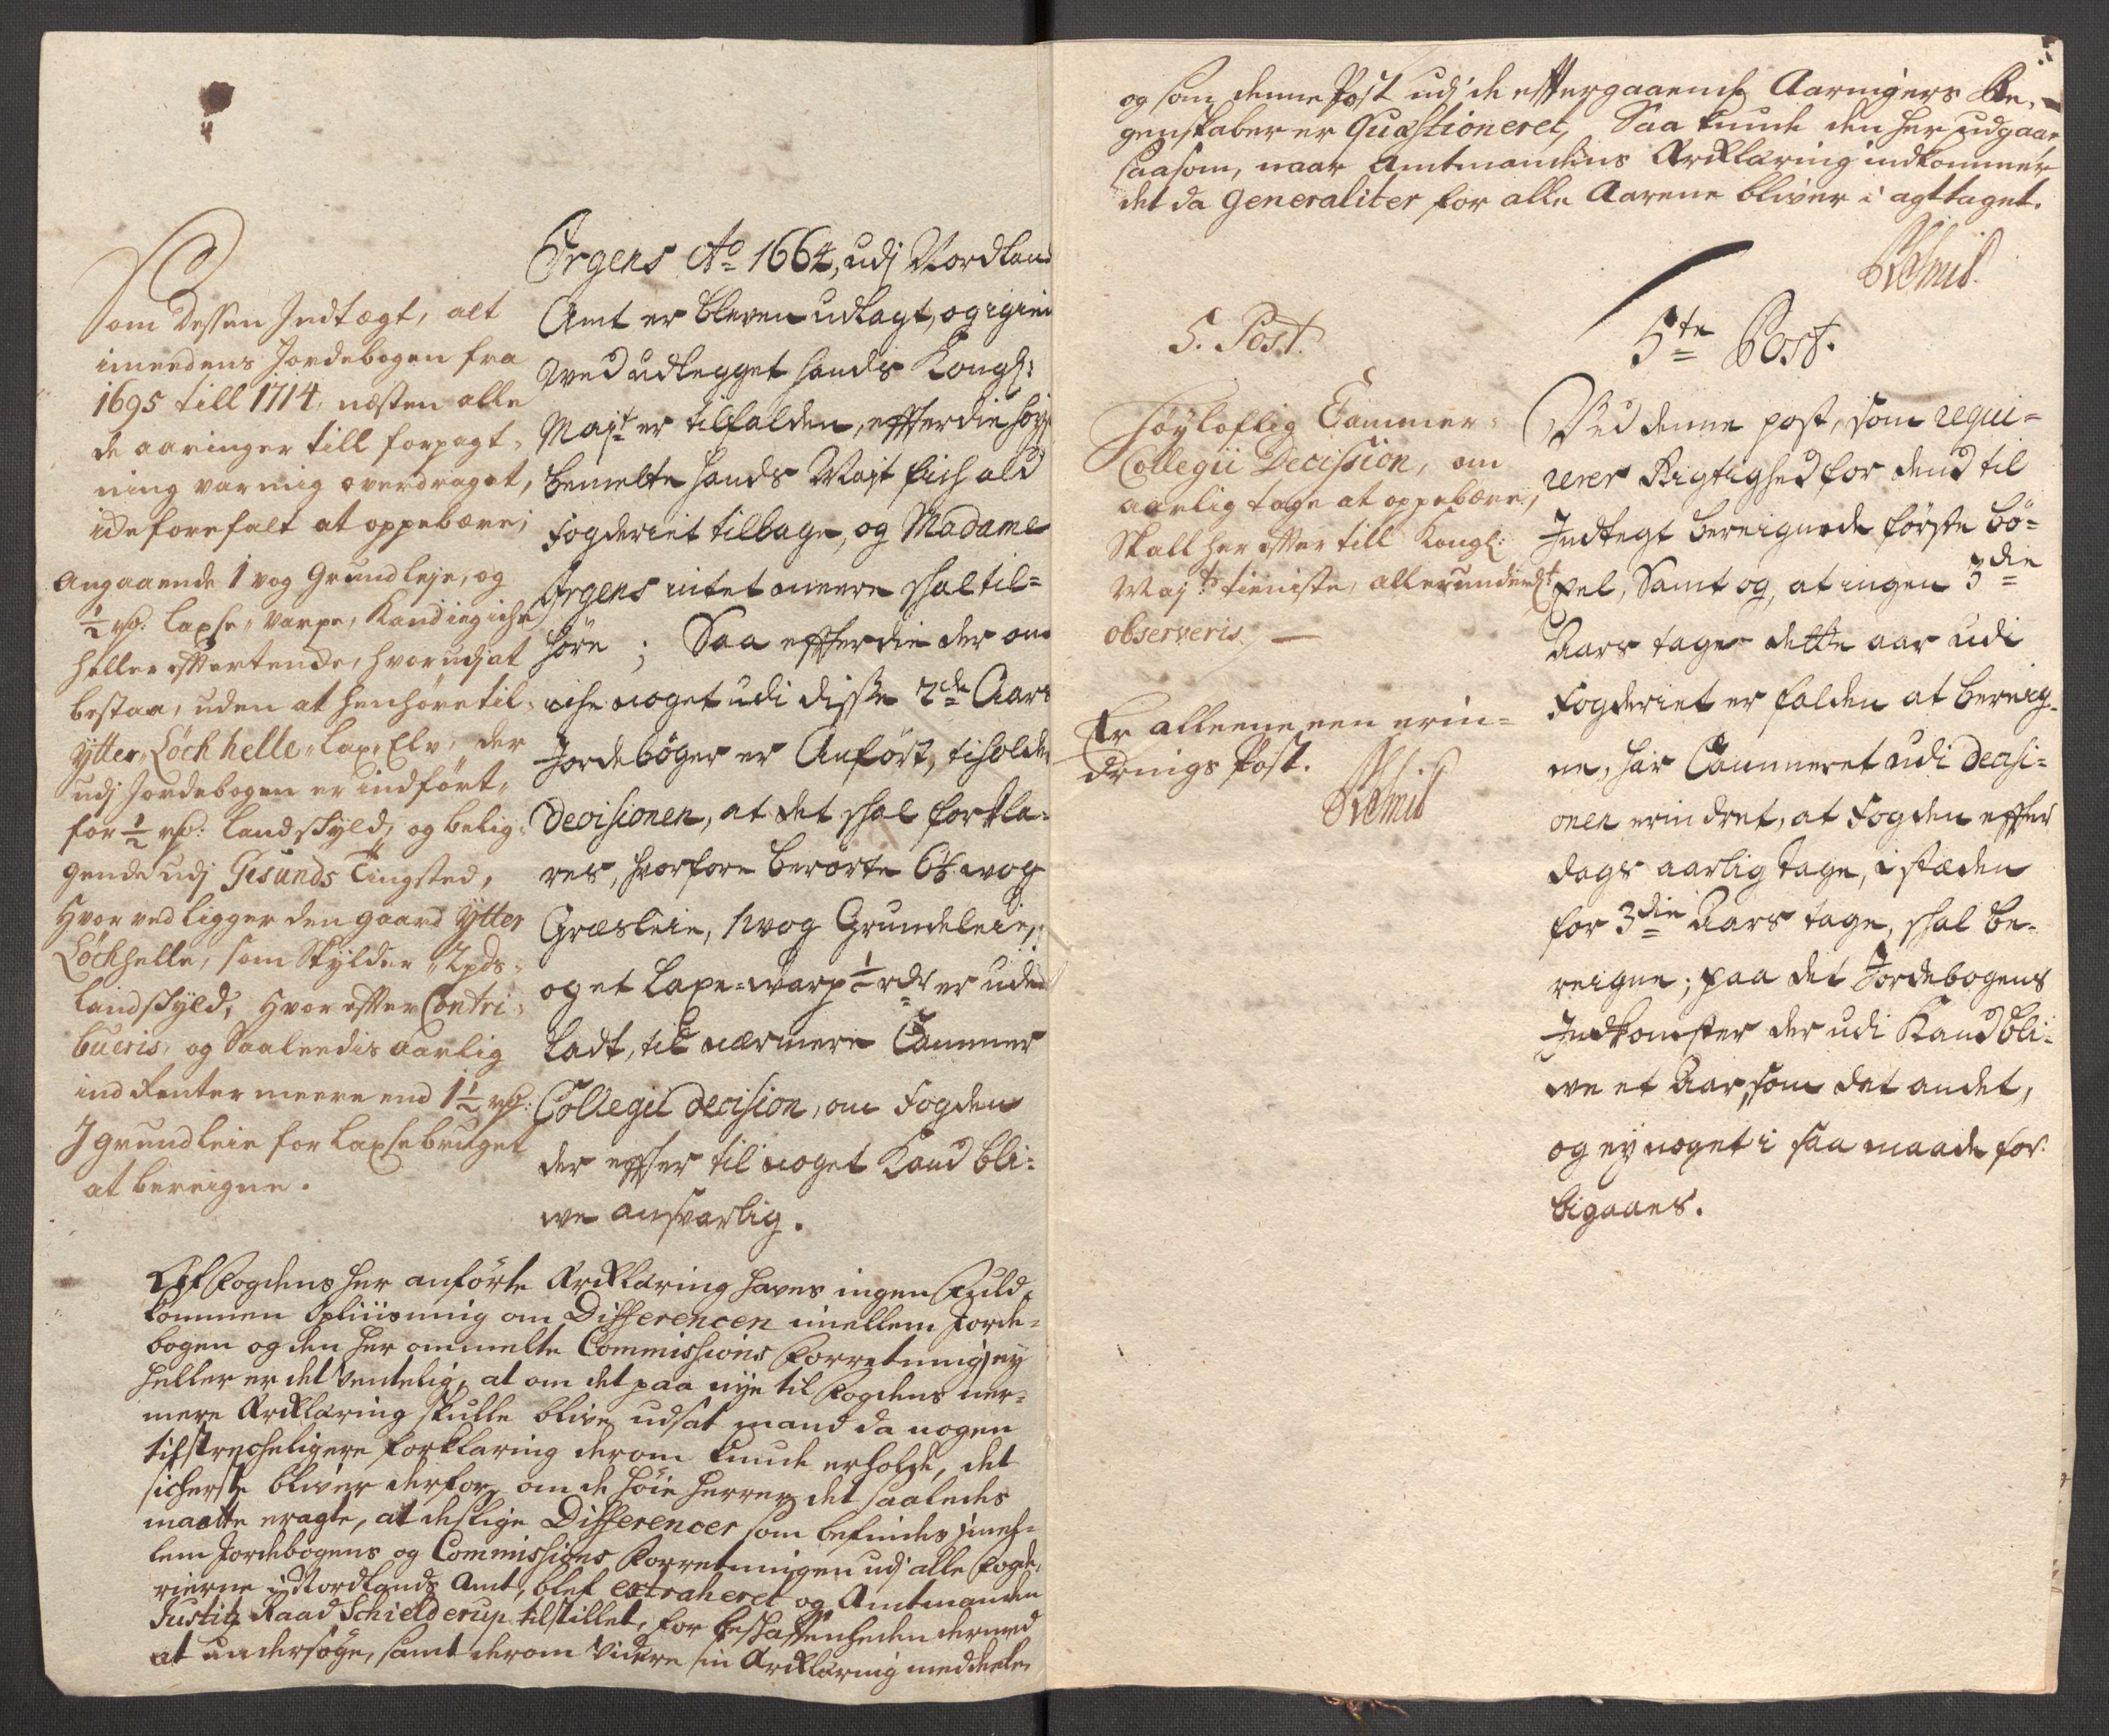 Som dessen Indtægt, alt
imeedens Jordebogen fra
1695 till 1714, næsten alle
de aaringer till forpagt-
ning var mig overdraget,
ideforefalt at oppebære;
Angaaende 1 vog Grundleje, og
½ rdr: laxse varpe, Kand ieg iche
heller effertende, hvorudj at
bestaa, uden at henhøre til
ÿtter Löchhelle Lax Elv, der
udj Jordebogen er indført,
for ½ rdr: landskyld, og belig-
gende udj Gisunds Tingsted,
Hvor ved ligger den gaard ÿtter
Löchhelle, som Skylder 2 pds
landskyld, Hvor effter Contri-
bueris, og Saaleedis aarlig
ind Renter meere end 1½ rdr:
I grundleie for Laxsebruget
at bereigne.
Irgens Ao 1664, udj Nordland
Amt er bleven udlagt, og igien
ved udlegget hands Kongl:
Mayt er tilfalden, effterdie høyst
bemelte hands Mayt fich ald
fogderiet tilbage, og Madame
Irgens intet meere skal til-
høre; Saa effterdie der om
iche noget udi disse 2de Aars
Jordebøger er Anført, tilholder
Decisionen, at det skal forkla-
res, hvorfore berørte 6½ wog
Græsleie, 1 wog Grundeleie,
og et laxe-warp ½ rdr er ude
ladt, til nærmere Cammer
Collegii decision, om fogden
der effter til noget Kand bli-
we ansvarlig.
Af Fogdens her anførte Erklæring haves ingen Fuld-
kommen Opliusning om Differencen imellem Jorde-
bogen og den her ommelte Commissions Forretning, ey
heller er det ventelig, at om det paa nye til Fogdens ner-
mere Erklæring skulle blive udsat mand da nogen
tilstrecheligere forklaring derom kunde erholde, det
sicherste bliver derfor, om de høie Herrer det saaledes
maatte eragte, at deslige Differencer som befindes imel-
lem Jordebogens og Commissions Forretningen udj alle Fogde-
rierne i Nordlands Amt, blef extraheret og Amtmanden
Justitz Raad Schielderup tilstillet, for beskaffenheden dermed
at undersøge, samt derom videre sin Erklæring meddeele,
og som denne Post udj de effterfølgende Aaringers Re-
genskaber er Quæstioneret, Saa kunde den her udgaae
saasom, naar Amtmandens Erklæring indkommer
det da generaliter for alle Aarene bliver i agttaget.
5. Post.
Høyloflig Cammer-
Collegii Decission, om
aarlig tage at oppebære,
Skall her effter till Kongl:
Mayts tieniste, allerunderdt
observeris.
Er alleene een erin-
drings Post.
5te Post.
Ved denne post, som requi-
rerer Rigtighed for dend til
Indtegt bereignede første bö-
xel, Samt og, at ingen 3die
Aars tage dette aar udi
fogderiet er falden at bereig-
ne, har Cammeret udi decisi-
onen erindret, at fogden effter
dags aarlig tage, i stæden
for 3die Aars tage, skal be-
reigne; paa det Jordebogens
Indkomster der udi Kand bli-
we et Aar, som det andet,
og ey noget i saa maade for-
bigaaes.